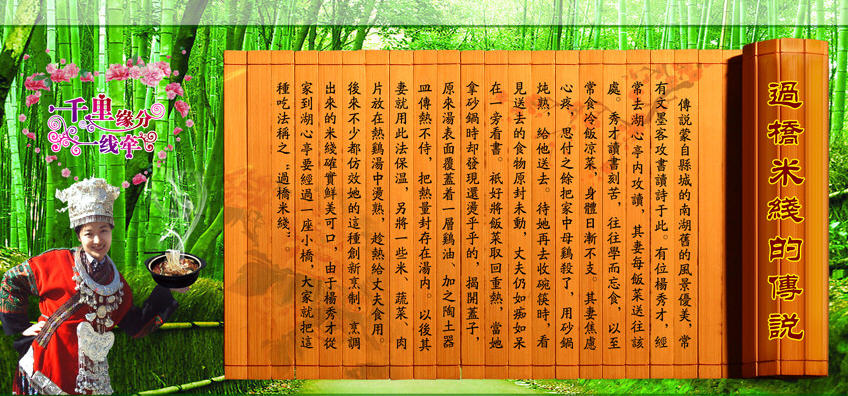 過橋米綫的傳説
傳説蒙自縣城的南湖舊的風景優美，常
有文墨客攻書讀詩于此。有位楊秀才，經
常去湖心亭内攻讀，其妻每飯菜送往該
處。秀才讀書刻苦，往往學而忘食，以至
常食冷飯凉菜，身體日漸不支。其妻焦慮
心疼，思付之餘把家中母鷄殺了，用砂鍋
炖熟，給他送去。待她再去收碗筷時，看
見送去的食物原封未動，丈夫仍如痴如呆
在一旁看書。祇好將飯菜取回重熱，當她
拿砂鍋時却發現還燙乎乎的，揭開蓋子，
原來湯表面覆蓋着一層鷄油、加之陶土器
皿傳熱不佳，把熱量封存在湯内。以後其
妻就用此法保温，另將一些米、蔬菜、肉
片放在熱鷄湯中燙熟，趁熱給丈夫食用。
後來不少都仿效她的這種創新烹制，烹調
出來的米綫確實鮮美可口，由于楊秀才從
家到湖心亭要經過一座小橋，大家就把這
種吃法稱之“過橋米綫”。
千里缘分
一线牵